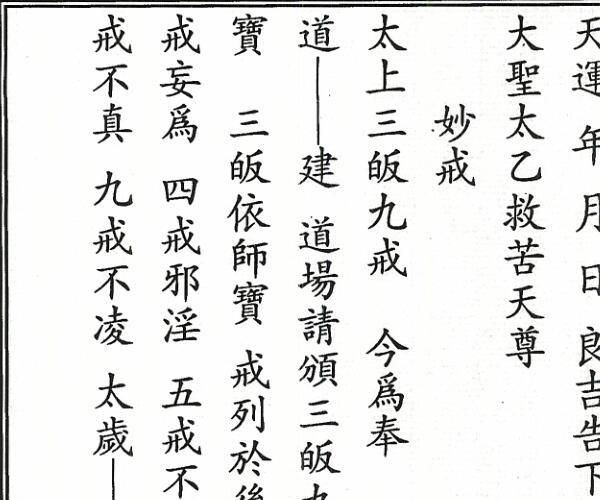 天運 年 月 日 良吉告下
太聖太乙救苦天尊
妙戒
太上三皈九戒 今爲奉
道 建 道場請頒三皈九
寶 三皈依師寶 戒列於後
戒妄爲 四戒邪淫 五戒不
戒不真 九戒不凌 太歲